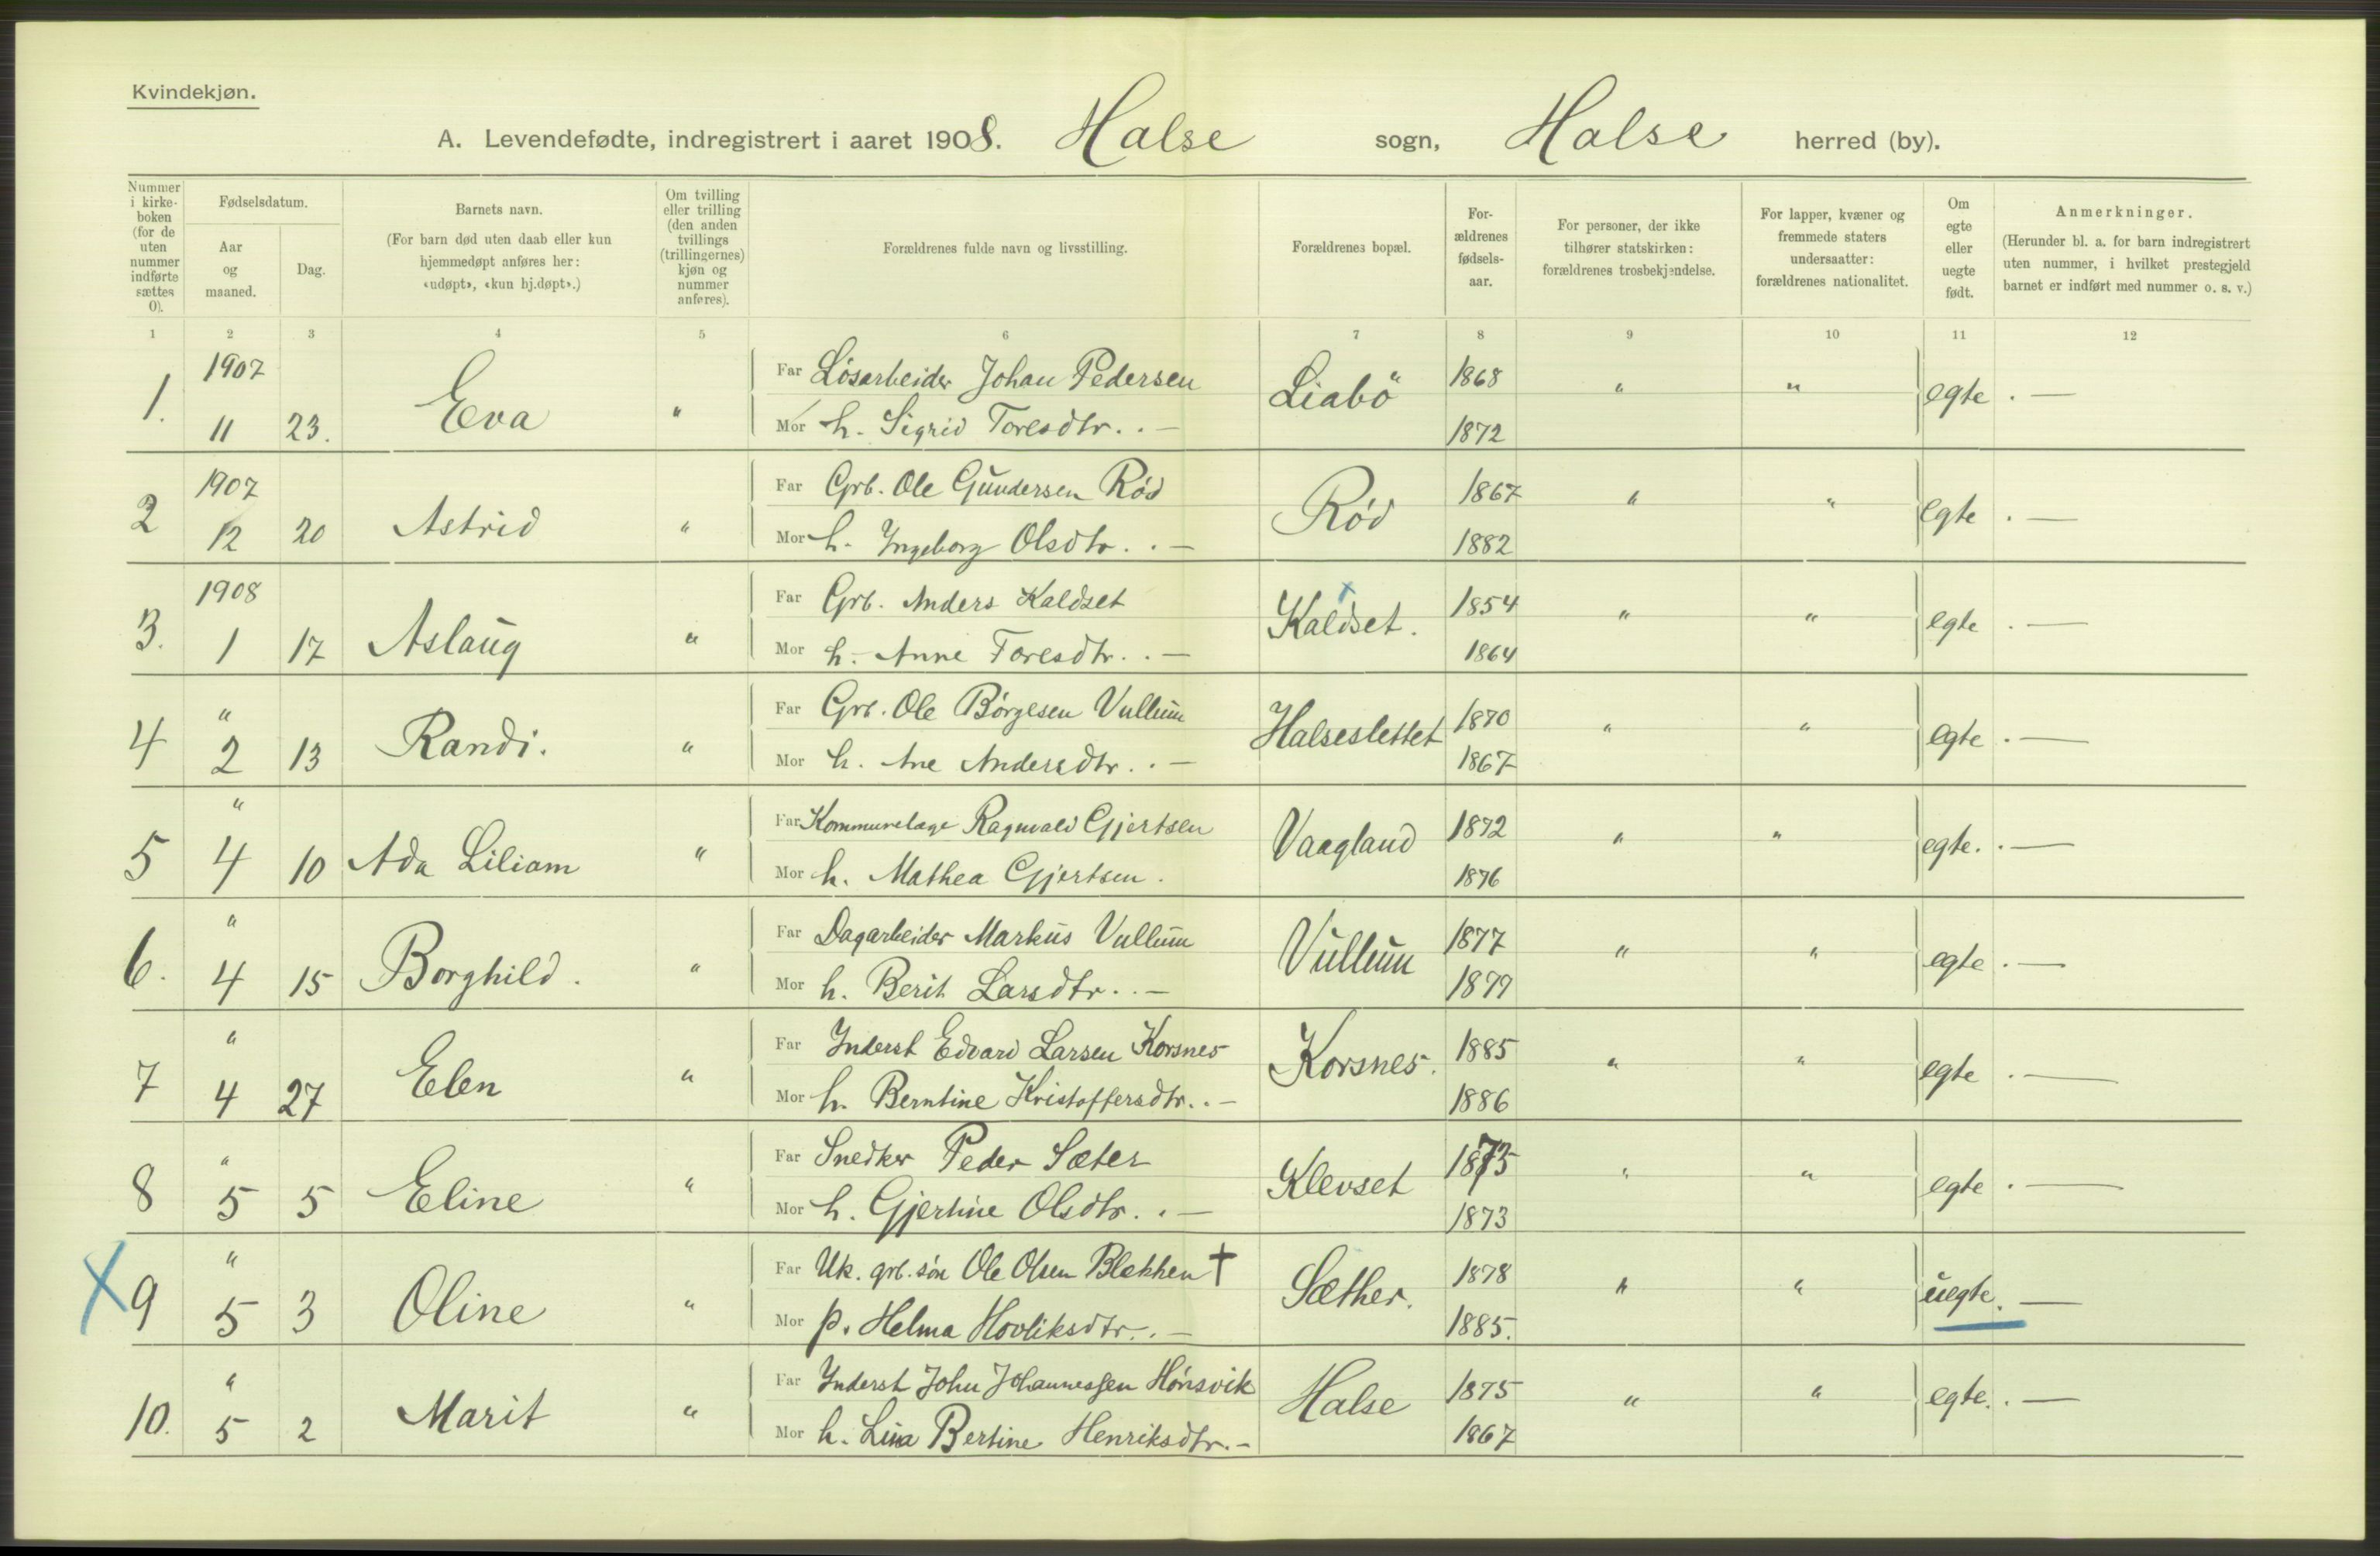 Kvindekjøn.
A. Levendefødte, indregistrert i aaret 1908. Halse sogn, Halse herred (by).
Nummer i kirke-boken (for de uten nummer indførte sættes 0).
Fødselsdatum.
Aar og maaned.
Dag.
Barnets navn.
(For barn død uten daab eller kun hjemmedøpt anføres her: «udøpt», «kun hj.døpt».)
Om tvilling eller trilling (den anden tvillings (trillingernes) kjøn og nummer anføres).
Forældrenes fulde navn og livsstilling.
Forældrenes bopæl.
For-ældrenes fødsels-aar.
For personer, der ikke tilhører statskirken: forældrenes trosbekjendelse.
For lapper, kvæner og fremmede staters undersaatter: forældrenes nationalitet.
Om egte eller uegte født.
Anmerkninger.
(Herunder bl. a. for barn indregistrert uten nummer, i hvilket prestegjeld barnet er indført med nummer o. s. v.)
1 2 3 4 5 6 7 8 9 10 11 12
1907
1. 11 23. Eva " Far Løsarbeider Johan Pedersen Liabö 1868 " " egte . —
Mor h. Sigrid Toresdtr. . — 1872
1907
2 12 20 Astrid " Far Grb. Ole Gundersen Rød Rød 1867 " " egte . —
Mor h. Ingeborg Olsdtr. . — 1882
1908
3. 1 17 Aslaug " Far Grb. Anders Kaldset Kaldset. 1854 " " egte . —
Mor h. Anne Toresdtr. . — 1864
"
4 2 13 Randi. " Far Grb. Ole Börgesen Vullum Halseslettet 1870 " " egte . —
Mor h. Ane Andersdtr. . — 1867
"
5 4 10 Ada Liliam " Far Kommunelæge Ragnvald Gjertsen Vaagland 1872 " " egte. . —
Mor h. Mathea Gjertsen. 1876
"
6. 4 15 Borghild. " Far Dagarbeider Markus Vullum Vullum 1877 " " egte . —
Mor h. Berit Larsdtr. . — 1879
"
7 4 27 Elen " Far Inderst Edvard Larsen Korsnes Korsnes. 1885 " " egte . —
Mor h. Berntine Kristoffersdtr. . — 1886
"
8 5 5 Eline " Far Snedker Peder Sæter Klevset 1873 " " egte . —
Mor h. Gjertine Olsdtr. . — 1873
"
X 9 5 3 Oline " Far Uk. grb. søn Ole Olsen Blekken † Sæther. 1878 " " uegte. —
Mor p. Helma Hovliksdtr. . — 1885.
"
10. 5 2 Marit " Far Inderst John Johannessen Hønsvik Halse 1875 " " egte. . —
Mor h. Lina Bertine Henriksdtr. — 1867